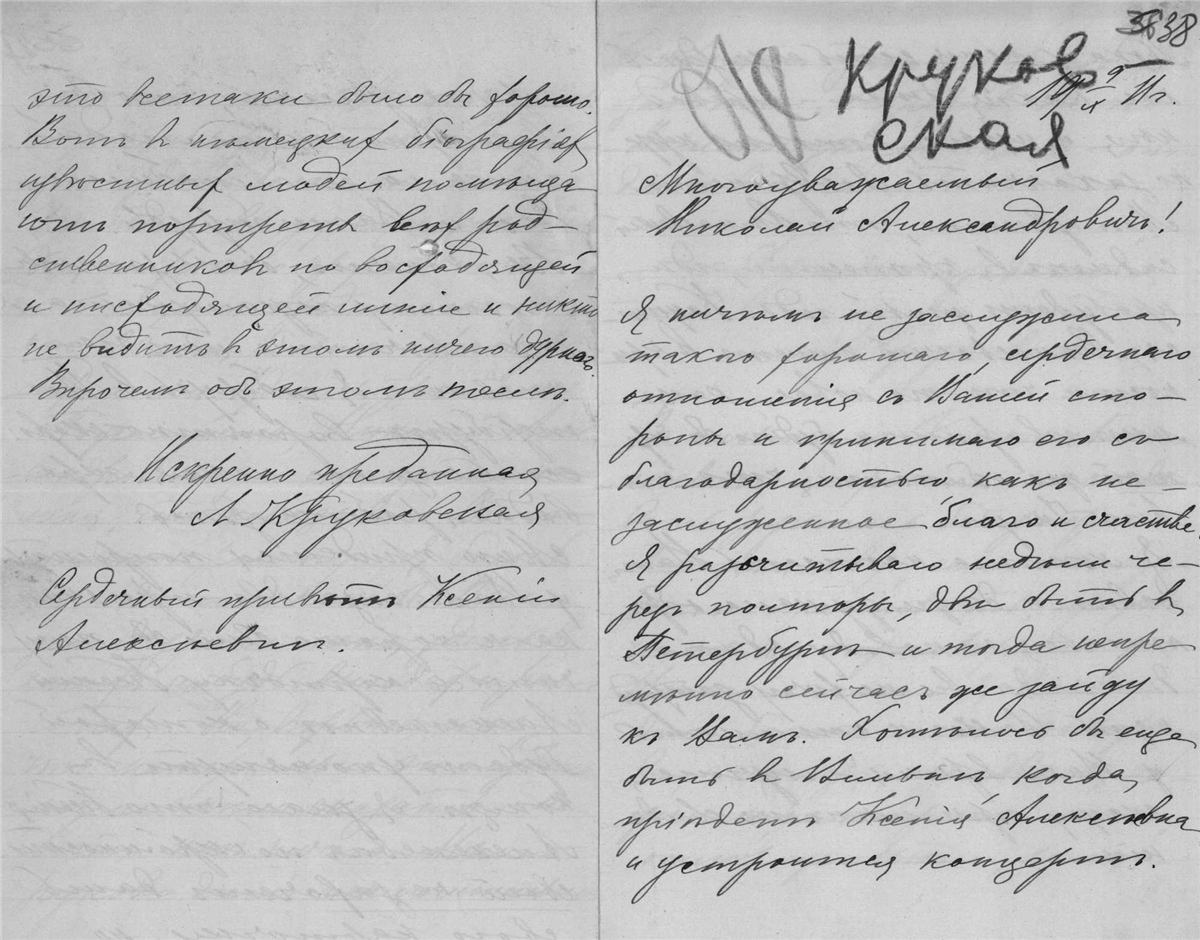 это всетаки было бы хорошо.
Вотъ въ нѣмецкихъ біографіяхъ
извѣстныхъ людей помѣща
ютъ портреты всѣхъ род-
ственниковъ по восходящей
и нисходящей линіи и никто
не видитъ въ этомъ ничего дурного.
Впрочемъ объ этомъ послѣ.
Искренно преданная
Л Круковская
Сердечный привѣтъ Ксеніи
Алексѣевнѣ.
38
Круков
ская
19 9/IX 11 г.
Многоуважаемый
Николай Александровичъ!
Я ничѣмъ не заслужила
такого хорошаго, сердечнаго
отношенія съ Вашей сто-
роны и принимаю его съ
благодарностью какъ не-
заслуженное благо и счастье.
Я разсчитываю недѣли че-
резъ полторы, двѣ быть въ
Петербургѣ и тогда непре
мѣнно сейчасъ же зайду
къ Вамъ. Хотѣлось бы еще
быть въ Вильнѣ, когда
пріѣдетъ Ксенія Алексѣевна
и устроится концертъ.